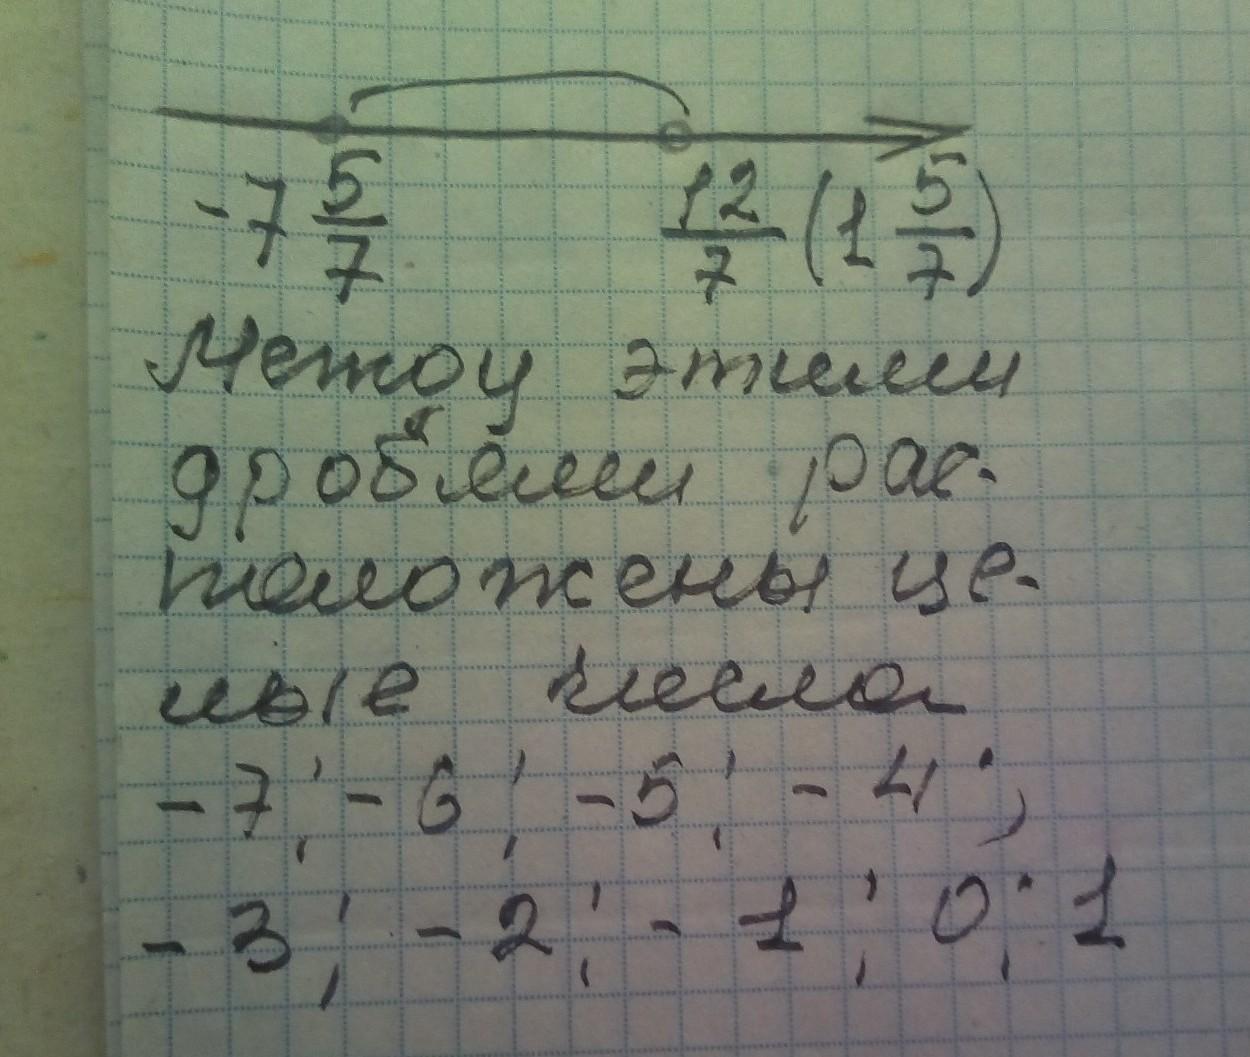 -7 5/7 12/7 (1 5/7)
Между этими
дробями рас-
положены це-
лые числа
-7; -6; -5; -4;
-3; -2; -1; 0; 1